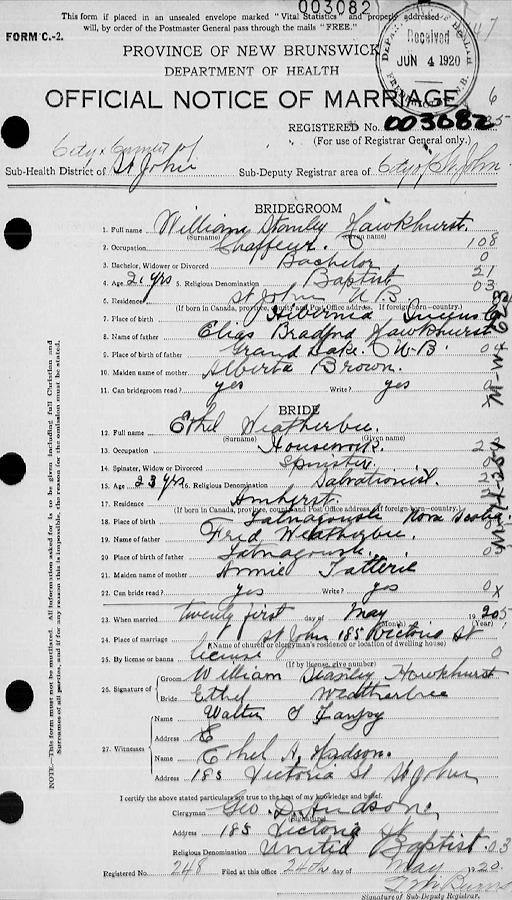 003082
This form if placed in an unsealed envelope marked "Vital Statistics" and properly addressed
will, by order of the Postmaster General pass through the mails "FREE."
FORM C.-2.
47
DEPARTMENT OF HEALTH
Received
JUN 4 1920
FREDERICTON, N.B.
PROVINCE OF NEW BRUNSWICK
DEPARTMENT OF HEALTH
OFFICIAL NOTICE OF MARRIAGE
6
REGISTERED No. 003082
(For use of Registrar General only.)
City & County of
Sub-Health District of St John Sub-Deputy Registrar area of City of St. John
BRIDEGROOM
1. Full name William Stanley Hawkhurst.
(Surname) (Given name)
2. Occupation Chaffeur. 108
3. Bachelor, Widower or Divorced Bachelor 0
4. Age 21 yrs 5. Religious Denomination Baptist 21
03
6. Residence St John N.B
(If born in Canada, province, county and Post Office address. If foreign born—country.)
7. Place of birth Hibernia Queens Co
8. Name of father Elias Bradford Hawkhurst
9. Place of birth of father Grand Lake. N.B.
10. Maiden name of mother Alberta Brown.
11. Can bridegroom read? yes Write? yes
BRIDE
12. Full name Ethel Weatherbee.
(Surname) (Given name)
13. Occupation Housework.
14. Spinster, Widow or Divorced Spinster.
15. Age 23 yrs 16. Religious Denomination Salvationist.
17. Residence Amherst.
(If born in Canada, province, county and Post Office address. If foreign-born—country.)
18. Place of birth Tatnagouche Nova Scotia
19. Name of father Fred Weatherbee.
20. Place of birth of father Tatnagouche.
21. Maiden name of mother Annie Tatterie
22. Can bride read? yes Write? yes 0x
23. When married twenty first day of May 1920
(Month) (Year)
24. Place of marriage St John 185 Victoria St
(Name of church or clergyman's residence or location of dwelling house)
25. By license or banns license 0
(If by license, give number)
26. Signature of Groom William Stanley Hawkhurst
Bride Ethel Weatherbee
27. Witnesses
Name Walter
Address
Name Ethel A. Hudson.
Address 185 Victoria St St John
I certify the above stated particulars are true to the best of my knowledge and belief.
Clergyman Geo. D. Hudson,
(Signature)
Address 185 Victoria St
Religious Denomination United Baptist. 03
Registered No. 248 Filed at this office 24th day of May 1920.
Burns
Signature of Sub-Deputy Registrar.
NOTE.—This form must not be mutilated. All information asked for is to be given including full Christian and
Surnames of all parties, and if for any reason this is impossible, the reason for the omission must be stated.